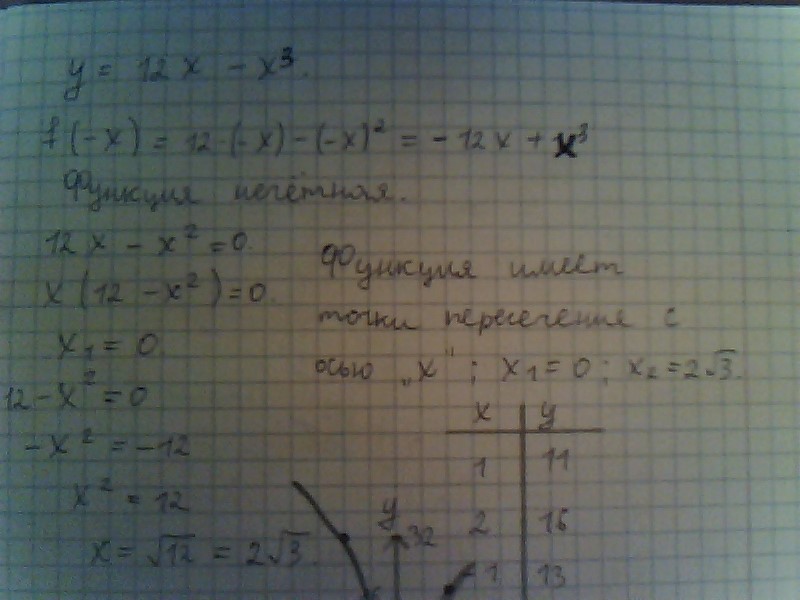 y = 12x - x³.
f(-x) = 12·(-x) - (-x)² = -12x + x³
Функция нечётная.
12x - x² = 0.
x(12 - x²) = 0.
x₁ = 0
12 - x² = 0
-x² = -12
x² = 12
x = √12 = 2√3.
Функция имеет
точки пересечения с
осью „x"; x₁ = 0; x₂ = 2√3.
x | y
1 | 11
2 | 16
1 | 13
y
32